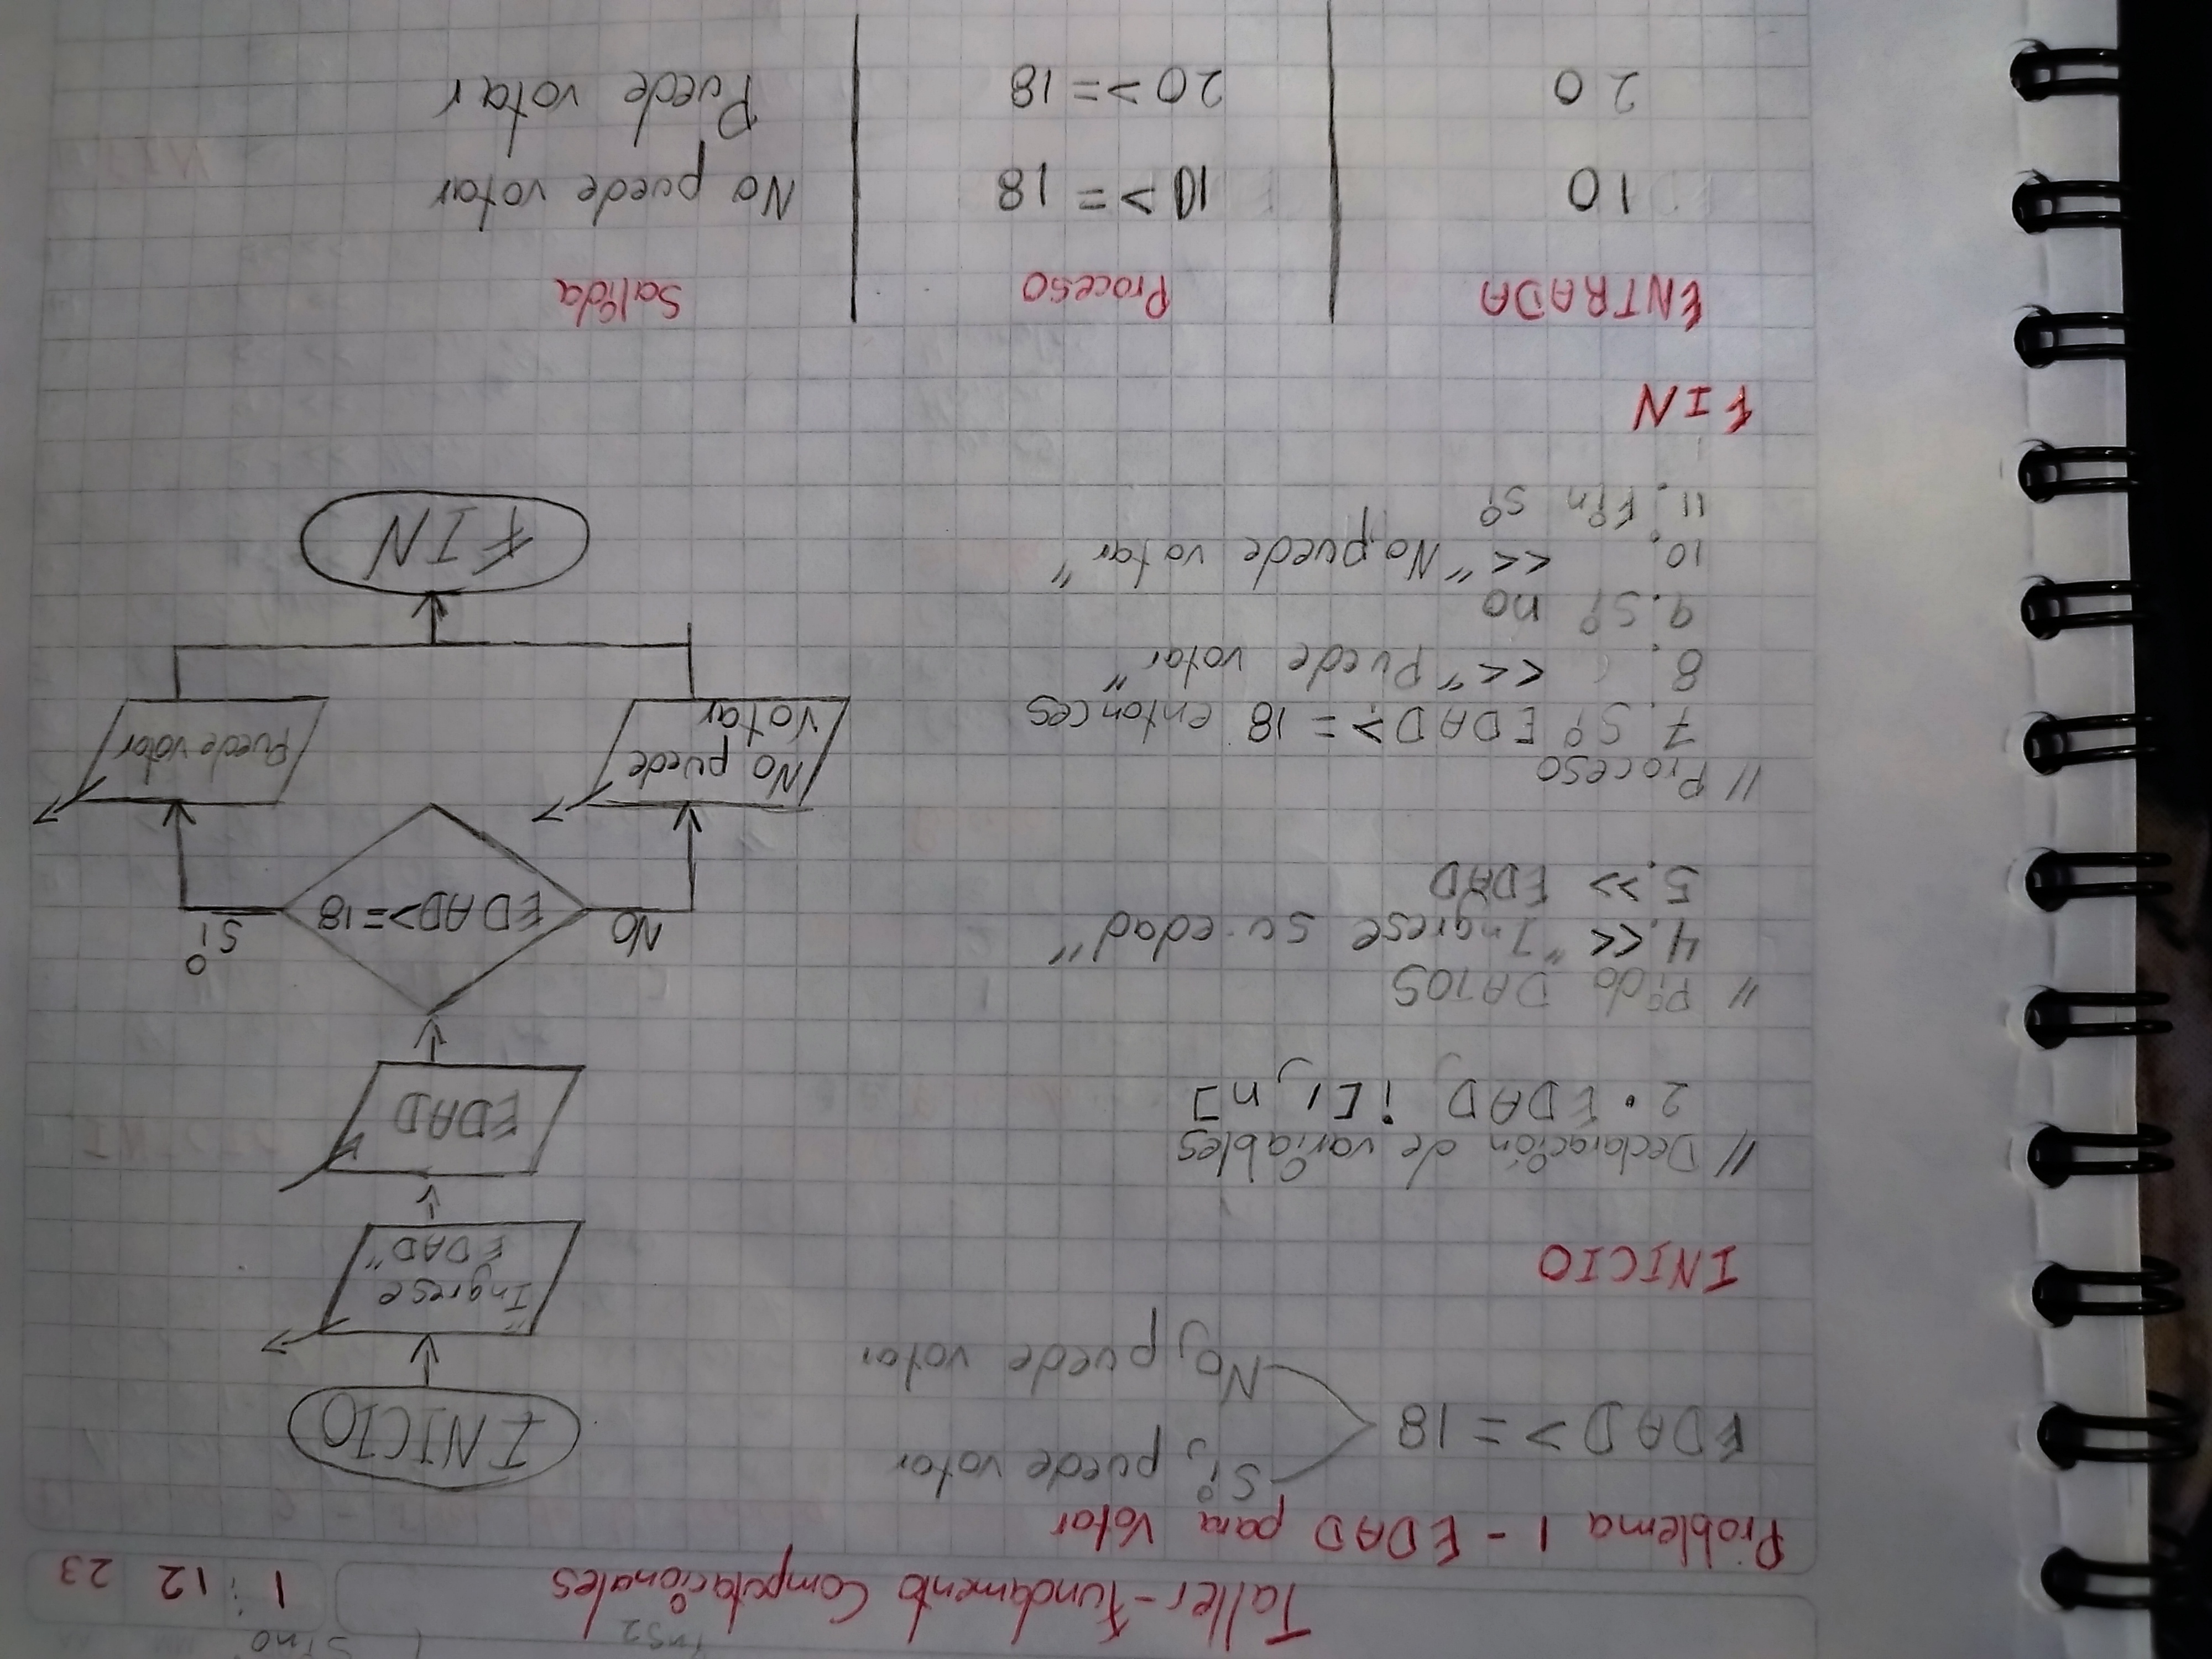 Sino
Taller-Fundamento Computacionales
1 12 23
Problema 1 - EDAD para Votar
EDAD >= 18
Si, puede votar
No, puede votar
INICIO
// Declaración de variables
2. EDAD, i [1, n]
// Pido DATOS
4. << "Ingrese su edad"
5. >> EDAD
// Proceso
7. Si EDAD >= 18 entonces
8. << "Puede votar"
9. Si no
10. << "No puede votar"
11. Fin si
FIN
INICIO
"Ingrese
EDAD"
EDAD
NO
EDAD>=18
Si
No puede
votar
Puede votar
FIN
ENTRADA Proceso Salida
10 10 >= 18 No puede votar
20 20 >= 18 Puede votar